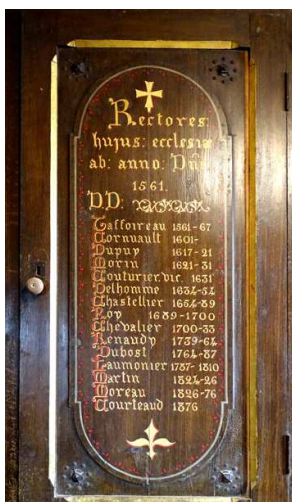 Rectores:
hujus: ecclesiæ
ab: anno: Dñi
1561.
D.D:
Gaffoireau 1561-67
Cornuault 1601-
Dupuy 1617-21
Morin 1621-31
Couturier. vic. 1631
Delhomme 1634-54
Chastellier 1654-89
Roy 1689-1700
Chevalier 1700-33
Renaudy 1739-64
Dubost 1764-87
Laumonier 1787-1810
Martin 1824-26
Moreau 1826-76
Courteaud 1876